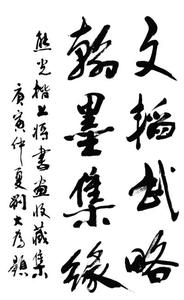 文韬武略
翰墨集缘
熊光楷上将书画收藏集
庚寅仲夏刘大为题